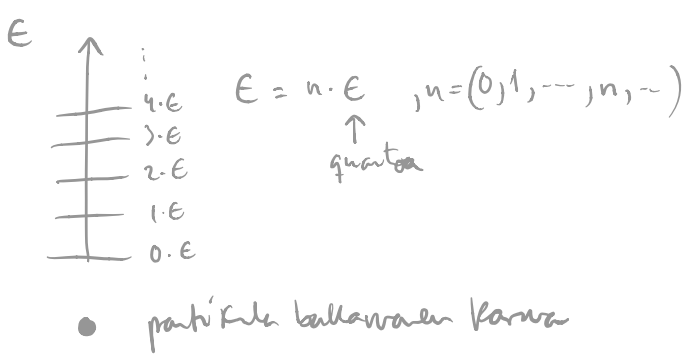 ϵ
4·ϵ
3·ϵ
2·ϵ
1·ϵ
0·ϵ
ϵ = n·ϵ , n=(0,1,---,n,--)
↑
quanta
partikula bakarraren